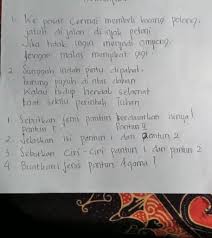 1. Ke pasar Cermai membeli barang polong,
jatuh di jalan di injak petani
Jika tidak ingin menjadi ompong,
jangan malas menyikat gigi!
2. Sungguh indah pintu dipahat,
burung puyuh di atas dahan
Kalau hidup hendak selamat
taat selalu perintah Tuhan
1. Sebutkan jenis pantun berdasarkan isinya!
pantun 1 pantun 2
2. Jelaskan isi pantun 1 dan pantun 2
3. Sebutkan ciri-ciri pantun 1 dan pantun 2
4. Buatkan jenis pantun Agama!